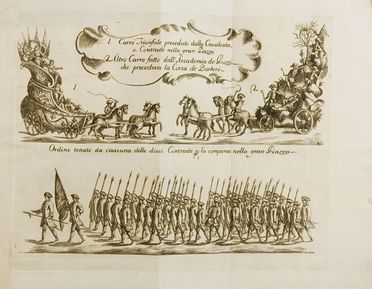 1. Carro Trionfale preceduto dalla Cavalcata,
e Contrade nella gran Piazza
2. Altro Carro fatto dall'Accademia de'
che precedeva la Corsa de' Barberi.
1
2
Ordine tenuto da ciascuna delle dieci Contrade la comparsa nella gran Piazza